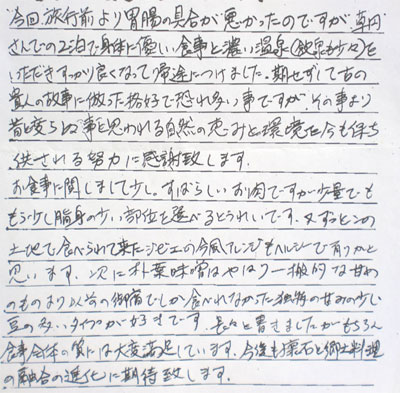 今回、旅行前より胃腸の具合が悪かったのですが草円
さんでの2泊で身体に優しい食事と濃い温泉(飲泉も少々)を
いただきすっかり良くなって帰途につけました。期せずして古の
貴人の故事に倣った格好で恐れ多い事ですが、その事より
昔と変らぬ事と思われる自然の恵みと環境を今も保ち
供される努力に感謝致します。
お食事に関しまして少し。すばらしいお肉ですが少量でも
もう少し脂身の少い部位を選べるとうれしいです。又ずっとこの
土地で食べられて来たジビエの今風アレンジもヘルシーで有りかと
思います。次に朴葉味噌はやはり一般的な甘め
のものより以前の御宿でしか食べれなかった独特の甘みの少い
豆の多いタイプが好きです。長々と書きましたがもちろん
食事全体の質には大変満足しています。今後も懐石と郷土料理
の融合の進化に期待致します。